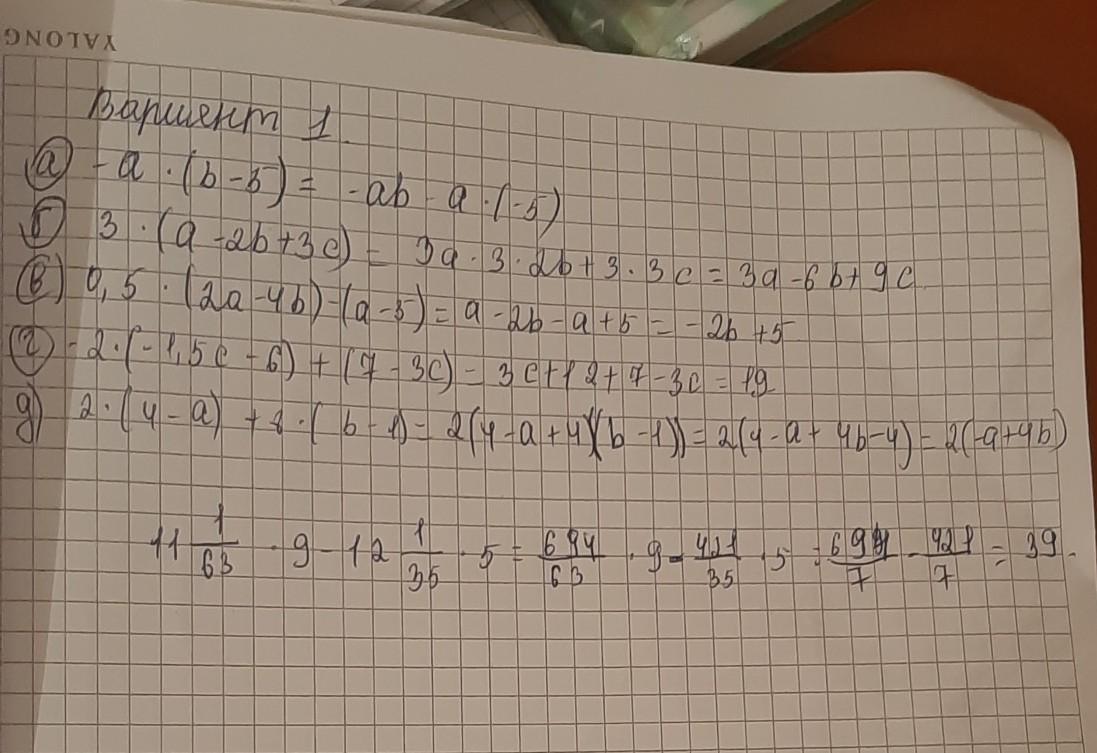 YALONG
Вариент 1.
а) -a · (b-5) = -ab - a · (-5)
б) 3 · (a-2b+3c) = 3a · 3 · 2b + 3 · 3c = 3a - 6b + 9c
в) 0,5 · (2a-4b) - (a-5) = a - 2b - a + 5 = -2b + 5
г) -2 · (-1,5c - 6) + (7 - 3c) = 3c + 12 + 7 - 3c = 19
д) 2 · (4 - a) + 8 · (b - 1) = 2(4-a+4)(b-1)) = 2(4-a+4b-4) = 2(-a+4b)
11 1/63 · 9 - 12 1/35 · 5 = 694/63 · 9 - 421/35 · 5 = 694/7 - 421/7 = 39.